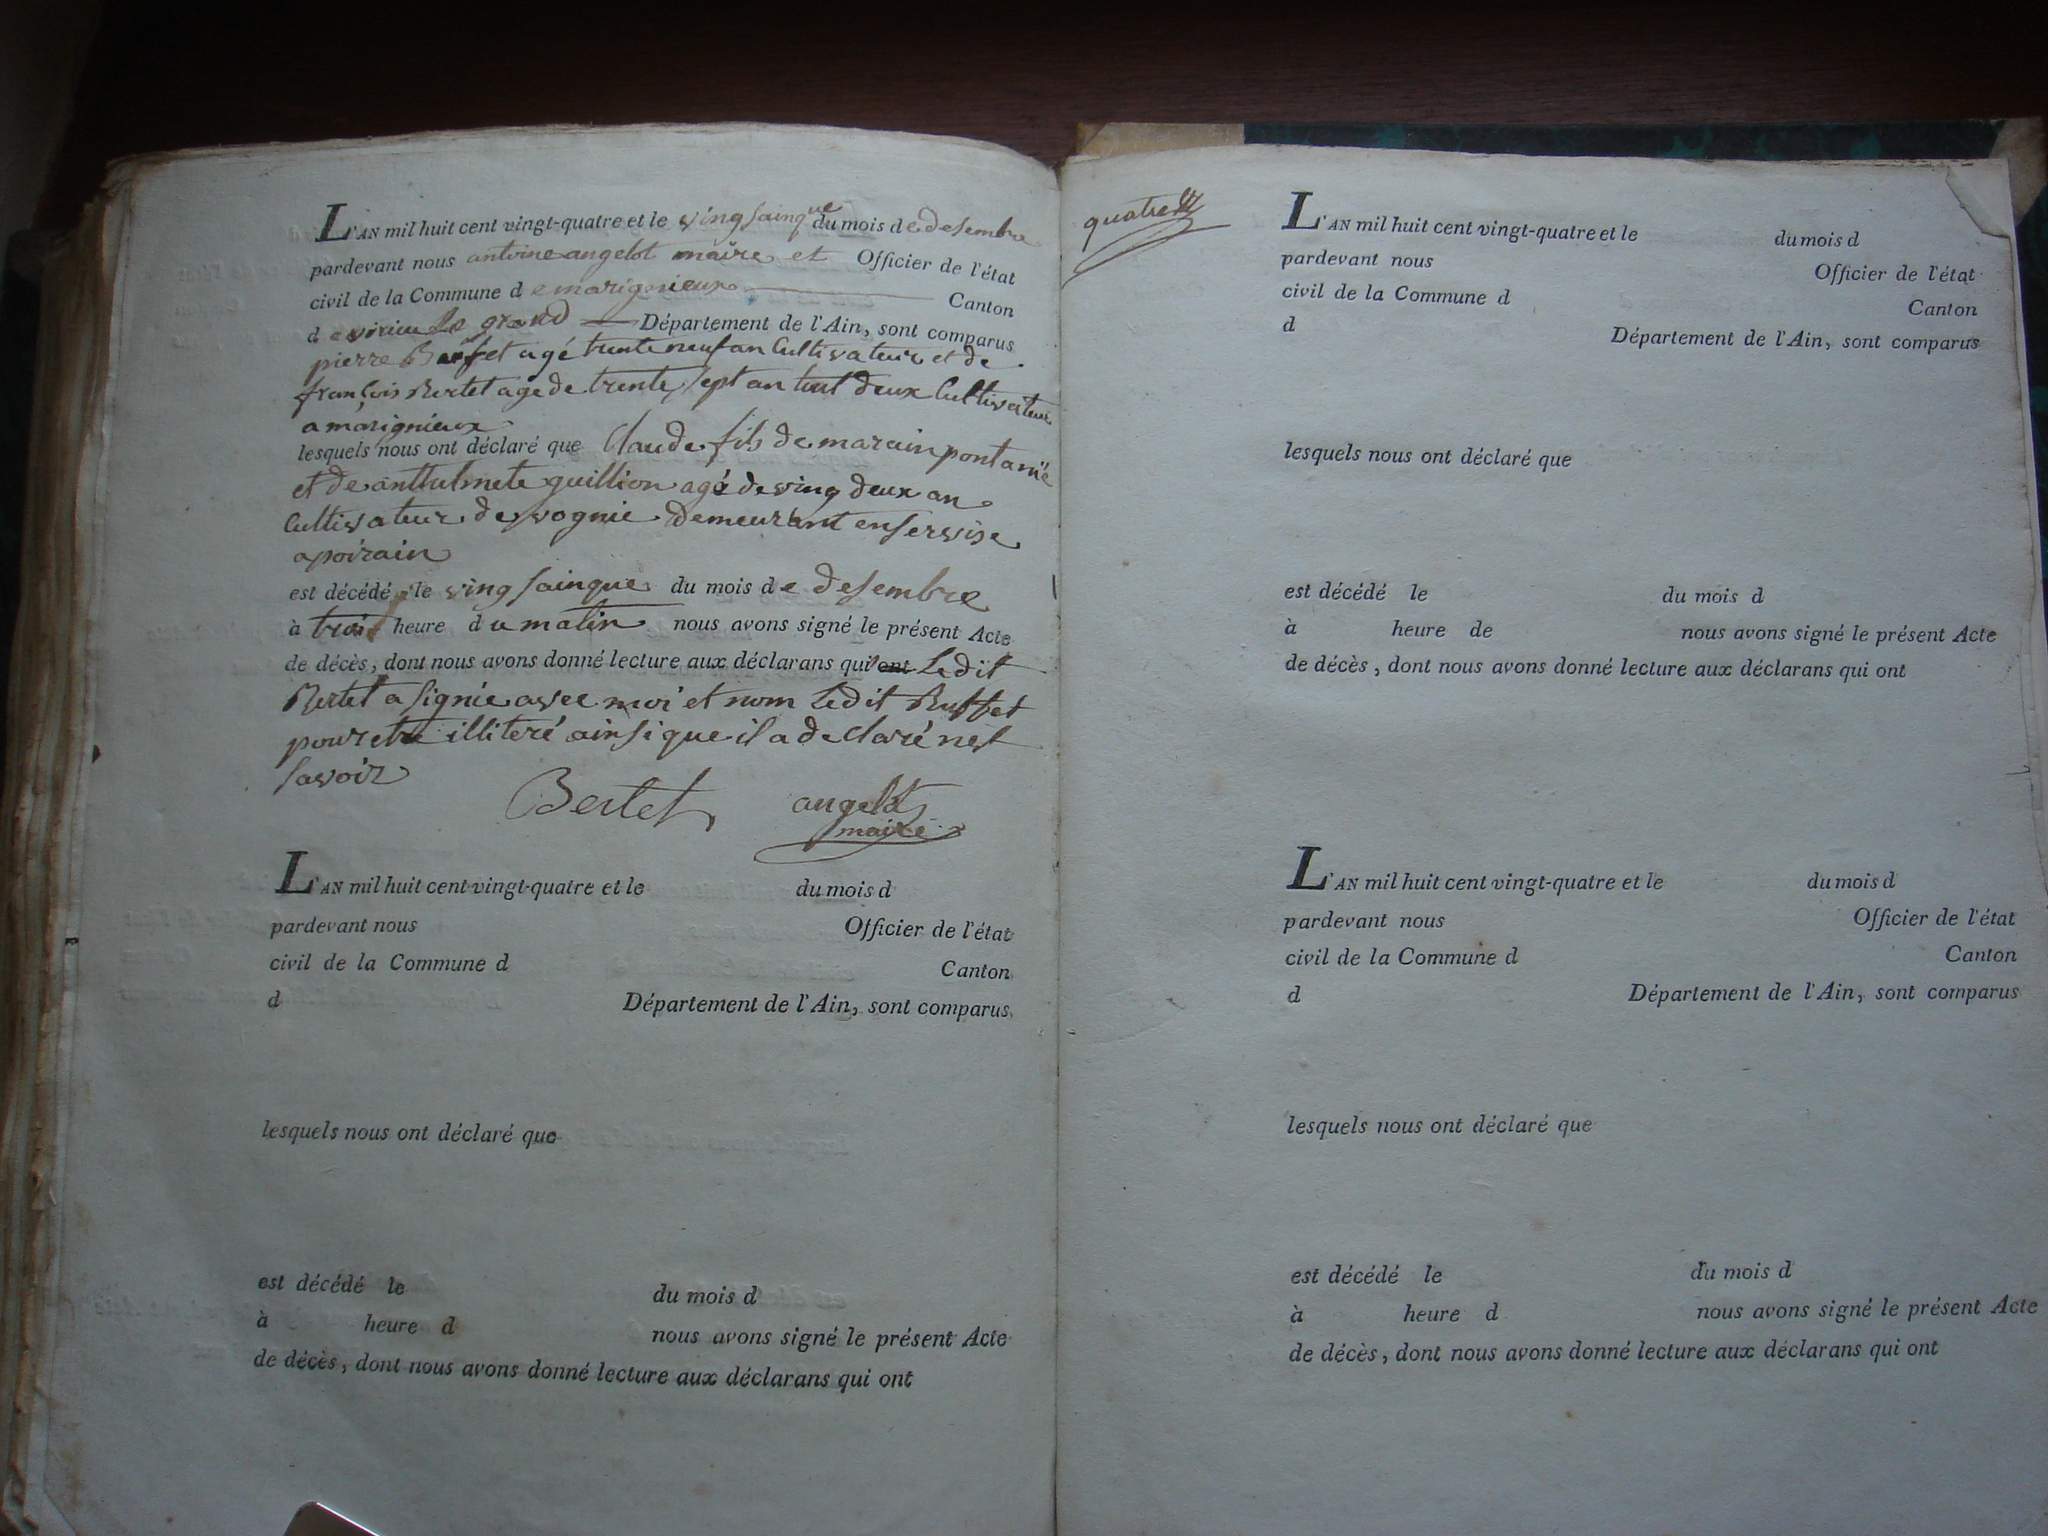 L'AN mil huit cent vingt-quatre et le ving sainque du mois de desembre
pardevant nous antoine angelot maire et Officier de l'état
civil de la Commune de marignieux Canton
de virieu le grand Département de l'Ain, sont comparus
pierre Buffet agé trente neuf an Cultivateur et de
françois Bertet age de trente sept an tout deux Cultivateur
a marignieux
lesquels nous ont déclaré que Claude fils de marain pontanié
et de anttulmete guillion agé de ving deux an
Cultivateur de vognie demeurant en servise
a poirain
est décédé le ving sainque du mois de desembre
à trois heure du matin nous avons signé le présent Acte
de décès, dont nous avons donné lecture aux déclarans qui ont ledit
Bertet a signie avec moi et nom ledit Buffet
pour etre illiteré ainsi que il a declaré nest
savoir
Bertet angelot
maire
L'AN mil huit cent vingt-quatre et le du mois d
pardevant nous Officier de l'état
civil de la Commune d Canton
d Département de l'Ain, sont comparus
lesquels nous ont déclaré que
est décédé le du mois d
à heure d nous avons signé le présent Acte
de décès, dont nous avons donné lecture aux déclarans qui ont
quatre
L'AN mil huit cent vingt-quatre et le du mois d
pardevant nous Officier de l'état
civil de la Commune d Canton
d Département de l'Ain, sont comparus
lesquels nous ont déclaré que
est décédé le du mois d
à heure de nous avons signé le présent Acte
de décès, dont nous avons donné lecture aux déclarans qui ont
L'AN mil huit cent vingt-quatre et le du mois d
pardevant nous Officier de l'état
civil de la Commune d Canton
d Département de l'Ain, sont comparus
lesquels nous ont déclaré que
est décédé le du mois d
à heure d nous avons signé le présent Acte
de décès, dont nous avons donné lecture aux déclarans qui ont